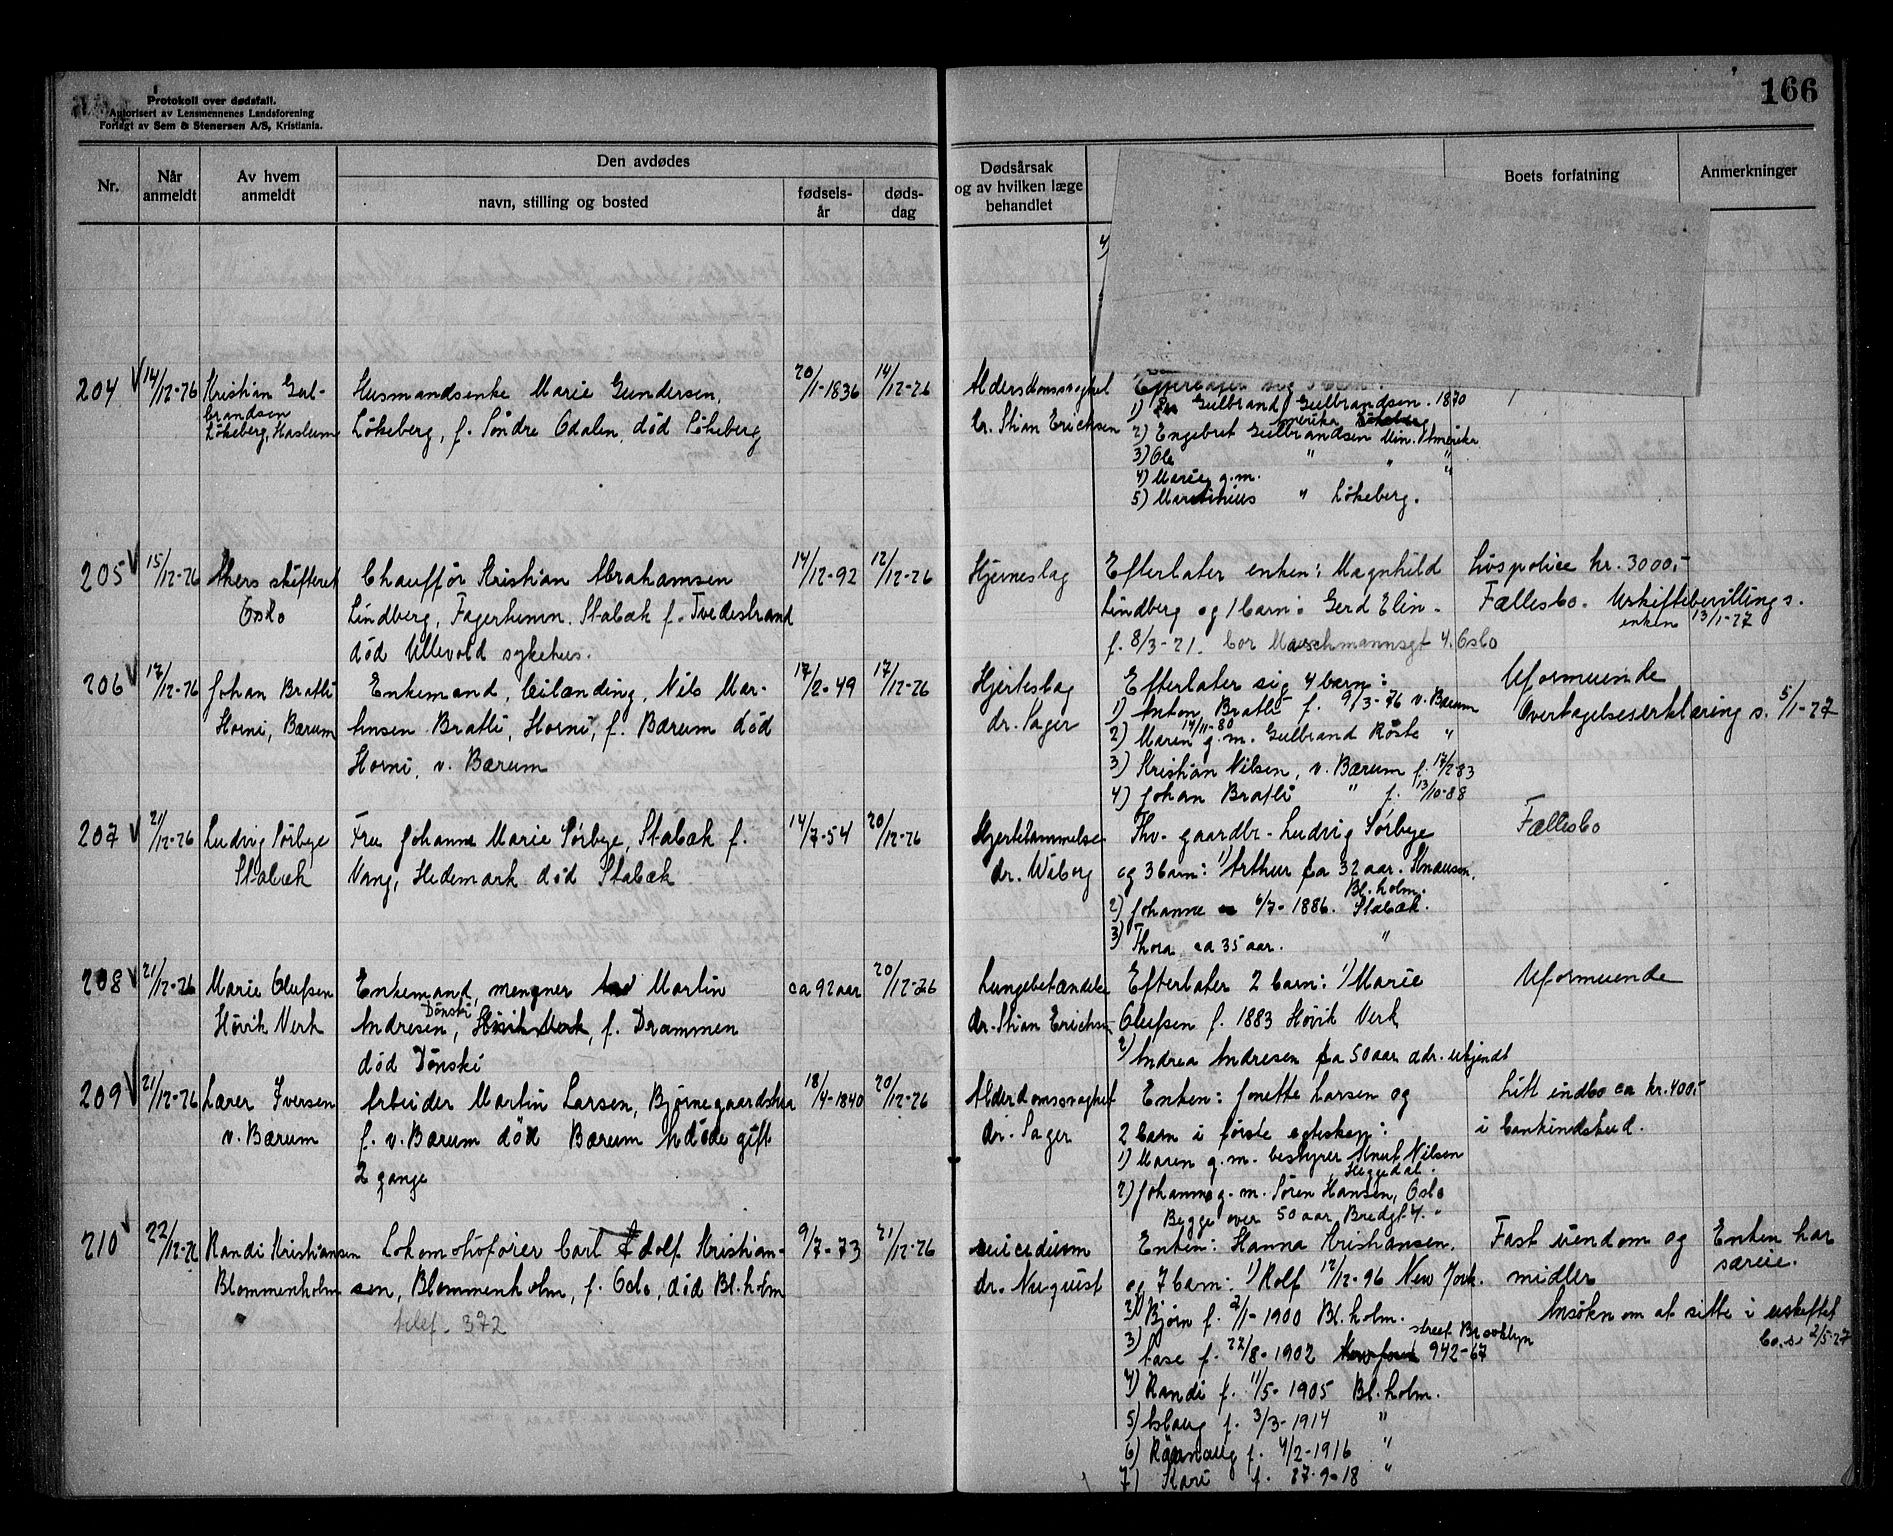 Protokoll over dødsfall.
Autorisert av Lensmennenes Landsforening
Forlagt av Sem & Stenersen A/S, Kristiania.
166
Nr.
Når anmeldt
Av hvem anmeldt
Den avdødes
navn, stilling og bosted
fødsels-år
døds-dag
Dødsårsak og av hvilken læge behandlet
Boets forfatning
Anmerkninger
4)
204 14/12-26 Kristian Gul-
brandsen
Løkeberg, Haslum
Husmandsenke Marie Gundersen,
Løkeberg, f. Søndre Odalen, død Løkeberg
20/1-1836 14/12-26
Alderdomssvaghet
Dr. Stian Erichsen
Efterlater sig 5 barn:
1) Gulbrand Gulbrandsen. 1870
Amerika
2) Engebret Gulbrandsen Min. Amerika
3) Ole " " "
4) Marie g.m. "
5) Martinius " Løkeberg.
205 15/12-26 Akers skifteret
Oslo
Chauffør Kristian Abrahamsen
Lindberg, Fagerheimn. Stabæk f. Tvedestrand
død Ullevold sykehus.
14/12-92 12/12-26
Hjerneslag
Efterlater enken: Magnhild
Lindberg og 1 barn: Gerd Elin
f. 8/3-21. bor Marschmannsgt 4. Oslo
Livspolice kr. 3000,-
Fællesbo. Uskiftebevilling s.
enken 13/1-27
206 17/12-26 Johan Bratli
Horni, Bærum
Enkemand, Nils Mar-
tinsen Bratli, Horni, f. Bærum død
Horni, v. Bærum
17/2-49 17/12-26
Hjerteslag
dr. Sager
Efterlater sig 4 barn:
1) Anton Bratli f. 9/3-76 v. Bærum
14/11-80
2) Maren g.m. Gulbrand Røste "
3) Kristian Nilsen, v. Bærum f. 17/2-83
4) Johan Bratli " f. 13/10-88
Uformuende
Overtagelseserklæring s. 5/1-27
207 21/12-26 Ludvig Sørbye
Stabæk
Fru Johanne Marie Sørbye, Stabæk f.
Vang, Hedemark død Stabæk
14/7-54 20/12-26
Hjertelammelse
dr. Wiborg
Ekv. gaardbr. Ludvig Sørbye
og 3 barn: 1) Arthur ca 32 aar.
Bl.holm.
2) Johanne 6/7-1886. Stabæk.
3) Thora ca 35 aar. "
Fællesbo
208 21/12-26 Marie Olufsen
Høvik Verk
Enkemand, Martin
Dønski
Andresen, f. Drammen
død Dønski
ca 92 aar 20/12-26
Lungebetændelse
dr. Stian Erichsen
Efterlater 2 barn: 1) Marie
Olufsen f. 1883 Høvik Verk
2) Andrea Andresen ca 50 aar adr. ukjendt
Uformuende
209 21/12-26 Lærer Iversen
v. Bærum
Arbeider Martin Larsen, Bjørnegaardshaa
f. v. Bærum død Bærum Avdøde gift
2 gange
18/4-1840 20/12-26
Alderdomssvaghet
dr. Sager
Enken: Jonette Larsen og
2 barn i første egteskap:
1) Maren g.m. bestyrer Knut Nilsen
Heggedal.
2) Johanne g.m. Søren Hansen, Oslo
Begge over 50 aar Bredgt. 4. "
Litt indbo ca kr. 400,-
i bankindskud.
210 22/12-26 Randi Kristiansen
Blommenholm
Lokomotivfører Carl Adolf Kristian-
sen, Blommenholm, f. Oslo, død Bl.holm
telef. 372
9/7-73 21/12-26
suicidium
dr. Nyquist
Enken: Hanna Kristiansen.
og 7 barn: 1) Rolf 12/12-96 New York.
2) Bjørn f. 7/1-1900 Bl.holm.
street Brooklyn
3) Aase f. 22/8-1902 942-67
4) Randi f. 11/5-1905 Bl.holm.
5) Aslaug f. 3/3-1914 "
6) Rannaug f. 4/2-1916 "
7) Kari f. 27-9-18 "
Fast eiendom og
midler
Ansøkn om at sitte i uskiftet
bo. s. 2/5-27
Enken har
særeie.